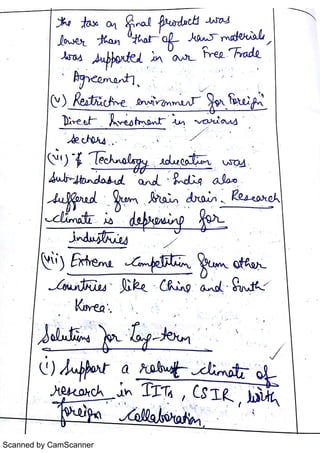 the tax on final products was
lower than that of raw materials,
was supported in our Free Trade
Agreement.
(v) Restrictive environment for Foreign
Direct Investment in various
sectors.
(vi) Technology education was
sub-standard and India also
suffered from brain drain. Research
climate is depressing for
industries
(vii) Extreme Competition from other
Countries like China and South
Korea.
Solutions for Long-term
(i) Support a robust climate of
research in IITs, CSIR, with
foreign Collaboration.
Scanned by CamScanner